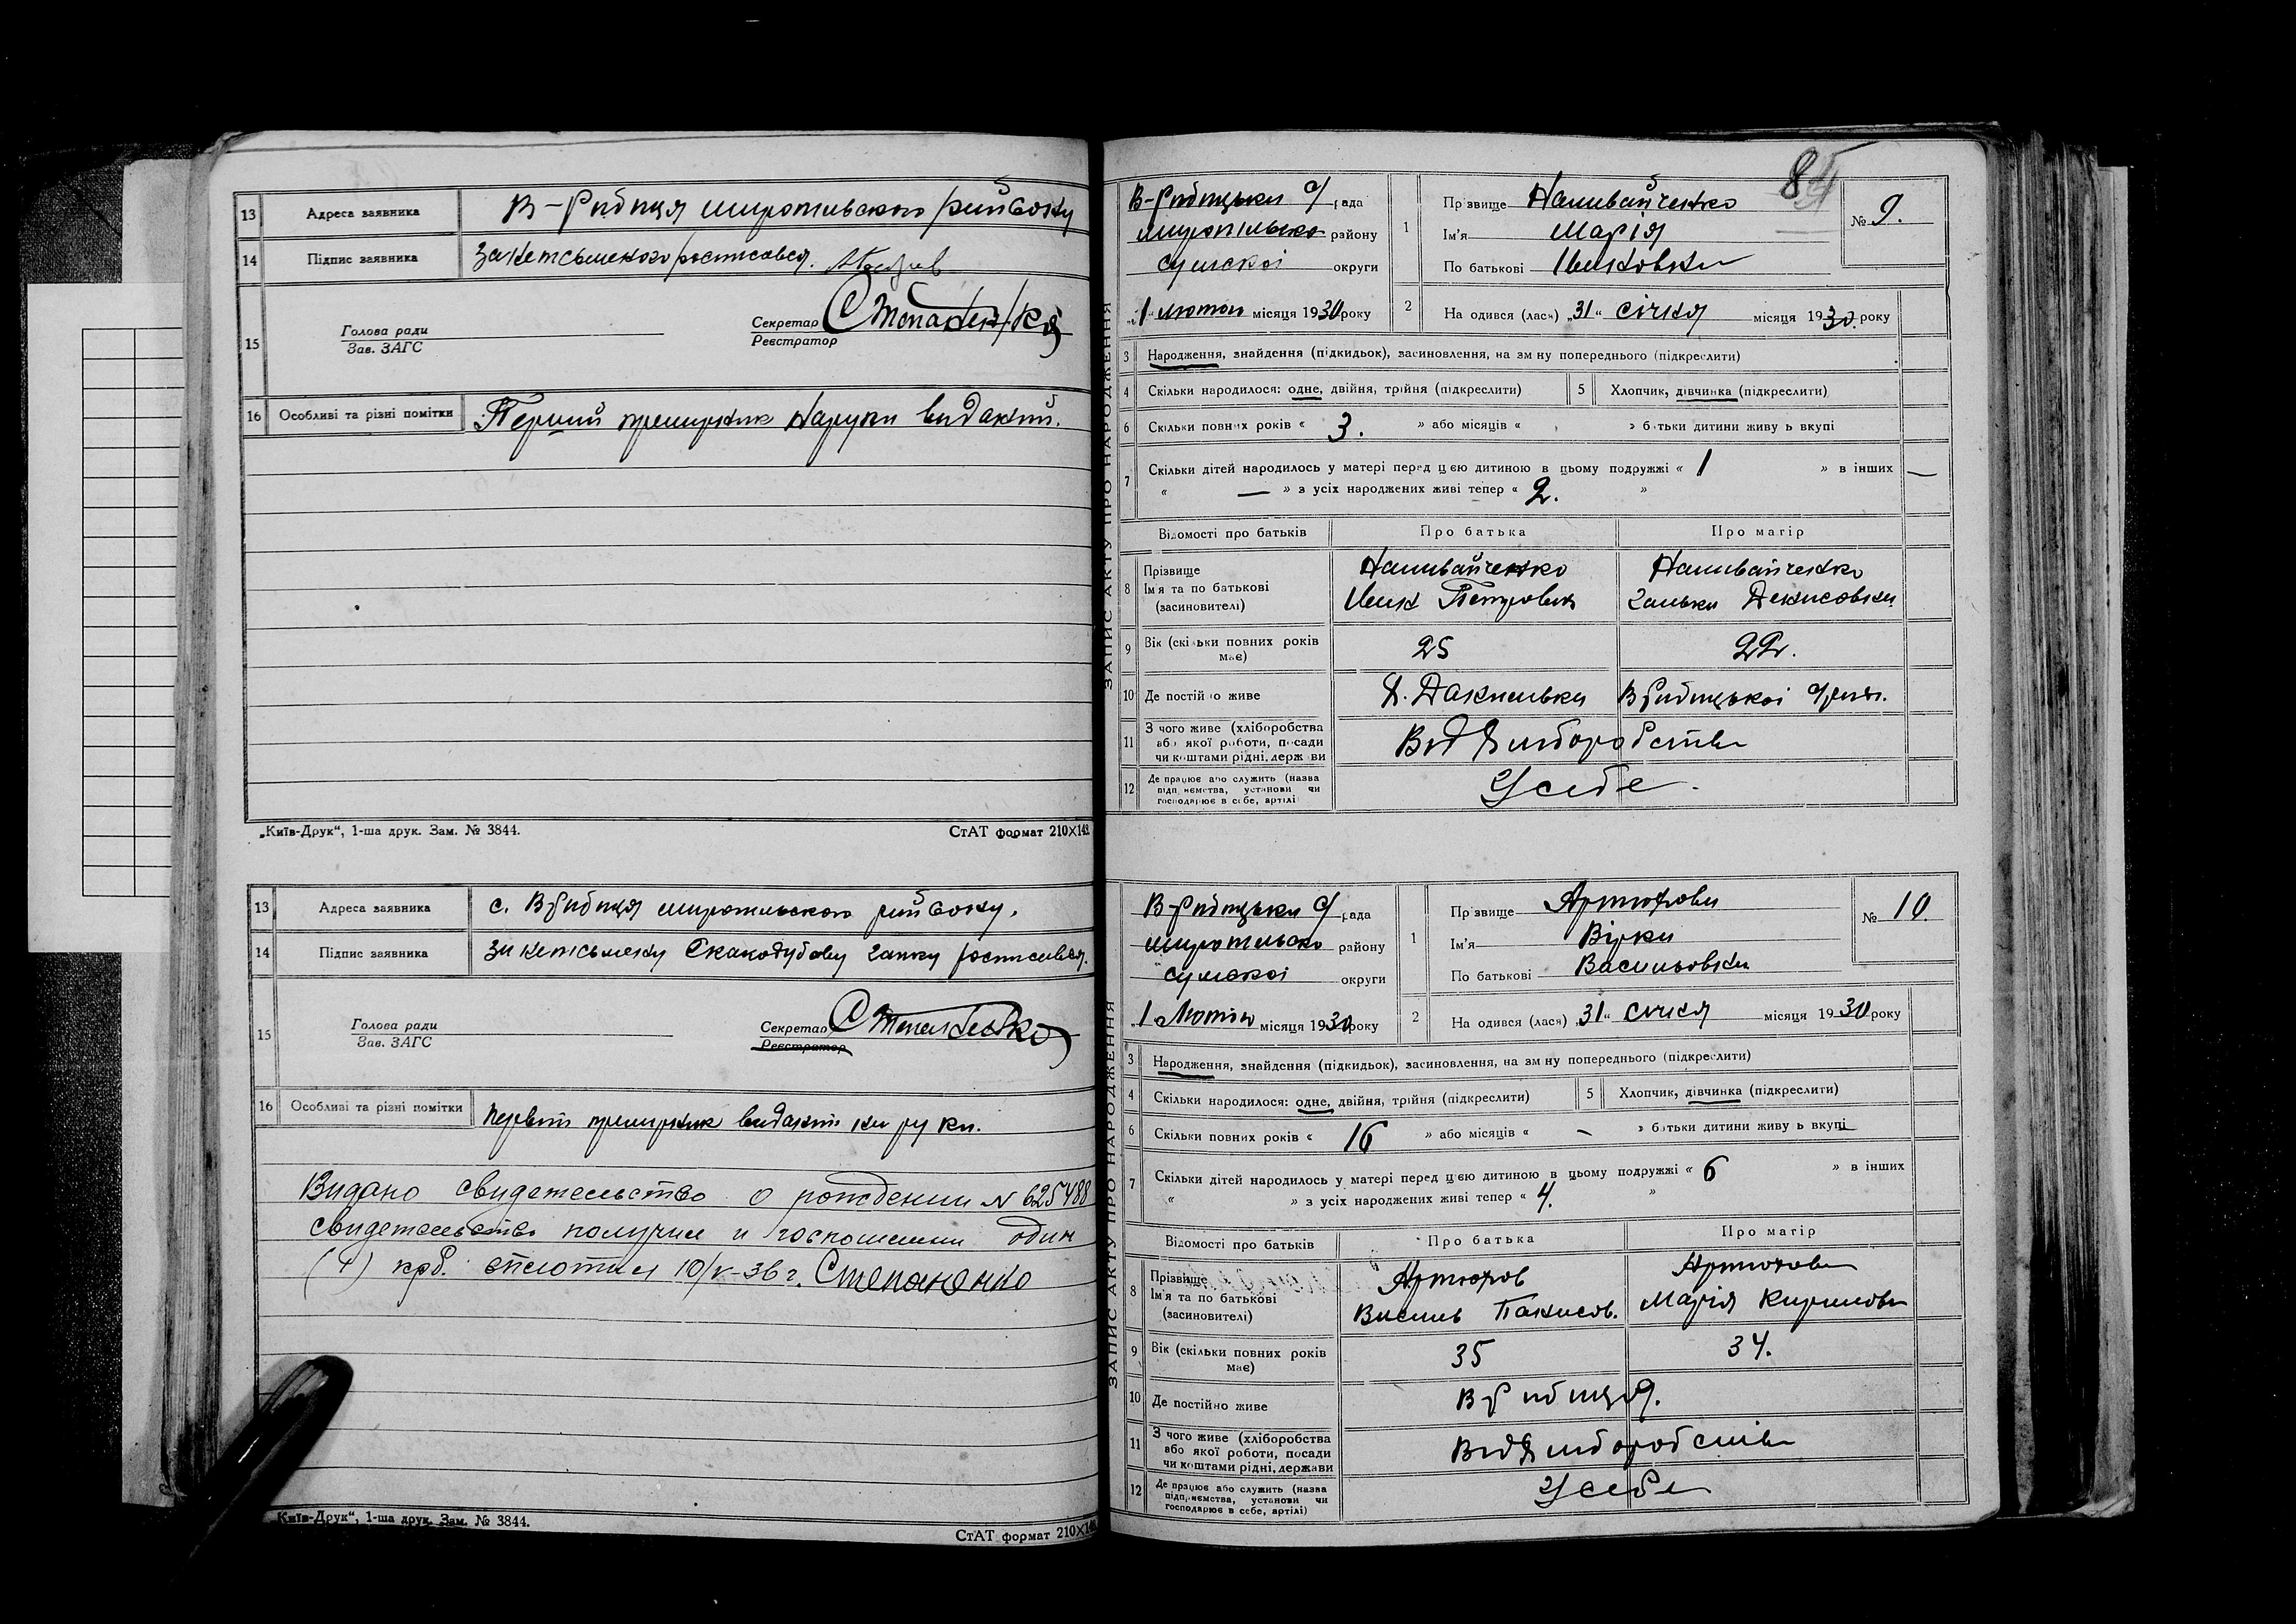 13 Адреса заявника В-Рибиця миропильского району
14 Підпис заявника За неписьменого росписався.
15 Голова ради
Зав. ЗАГС
Секретар Степаненко
Реєстратор
16 Особливі та різні помітки Перший примірник на руки виданий.
„Київ-Друк“, 1-ша друк. Зам. № 3844. СтАТ формат 210×148
13 Адреса заявника с. В Рибиця миропильского району.
14 Підпис заявника За неписьмену Скакодубову Ганну росписався.
15 Голова ради
Зав. ЗАГС
Секретар Степаненко
Реєстратор
16 Особливі та різні помітки Первий примірник виданий на руки.
Видано свидетельство о рождении N 625488
свидетельство получил и госпошлини один
(1) крб. сплотил 10/V-36 г. Степаненко
„Київ-Друк“, 1-ша друк. Зам. № 3844.
СтАТ формат 210×148
85
ЗАПИС АКТУ ПРО НАРОДЖЕННЯ
В-Рибицька с/рада
миропільско району
сумскої округи
„1“ лютого місяця 1930 року
1 Прізвище Наливайченко
Ім'я Марія
По батькові
№ 9.
2 Народився (лася) „31“ січня місяця 1930 року
3 Народження, знайдення (підкидьок), засиновлення, на зміну попереднього (підкреслити)
4 Скільки народилося: одне, двійня, трійня (підкреслити) 5 Хлопчик, дівчинка (підкреслити)
6 Скільки повних років « 3. » або місяців « » батьки дитини живуть вкупі
7 Скільки дітей народилось у матері перед цією дитиною в цьому подружжі « 1 » в інших —
« — » з усіх народжених живі тепер « 2. »
Відомості про батьків Про батька Про матір
8 Прізвище Наливайченко Наливайченко
Ім'я та по батькові
(засиновителі) Петрович Ганна Денисовна
9 Вік (скільки повних років має) 25 22.
10 Де постійно живе В Рибицької с/ради.
11 З чого живе (хліборобства
або якої роботи, посади
чи коштами рідні, держави Від Хліборобства
12 Де працює або служить (назва
підприємства, установи чи
господарює в себе, артілі У себе.
ЗАПИС АКТУ ПРО НАРОДЖЕННЯ
В-Рибицька с/рада
миропільско району
сумскої округи
„1“ Лютого місяця 1930 року
1 Прізвище Артюхова
Ім'я Вірка
По батькові Васильовна
№ 10
2 Народився (лася) „31“ січня місяця 1930 року
3 Народження, знайдення (підкидьок), засиновлення, на зміну попереднього (підкреслити)
4 Скільки народилося: одне, двійня, трійня (підкреслити) 5 Хлопчик, дівчинка (підкреслити)
6 Скільки повних років « 16 » або місяців « – » батьки дитини живуть вкупі
7 Скільки дітей народилось у матері перед цією дитиною в цьому подружжі « 6 » в інших
« » з усіх народжених живі тепер « 4. »
Відомості про батьків Про батька Про матір
8 Прізвище Артюхов Артюхова
Ім'я та по батькові
(засиновителі) Василь Марія Кирилова
9 Вік (скільки повних років має) 35 34.
10 Де постійно живе В Рибиця.
11 З чого живе (хліборобства
або якої роботи, посади
чи коштами рідні, держави Від Хліборобства
12 Де працює або служить (назва
підприємства, установи чи
господарює в себе, артілі) У себе